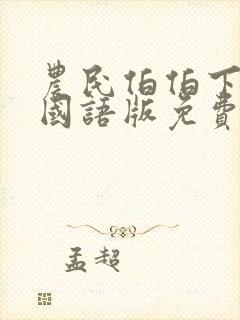 農民伯伯下
國語版免費
孟超